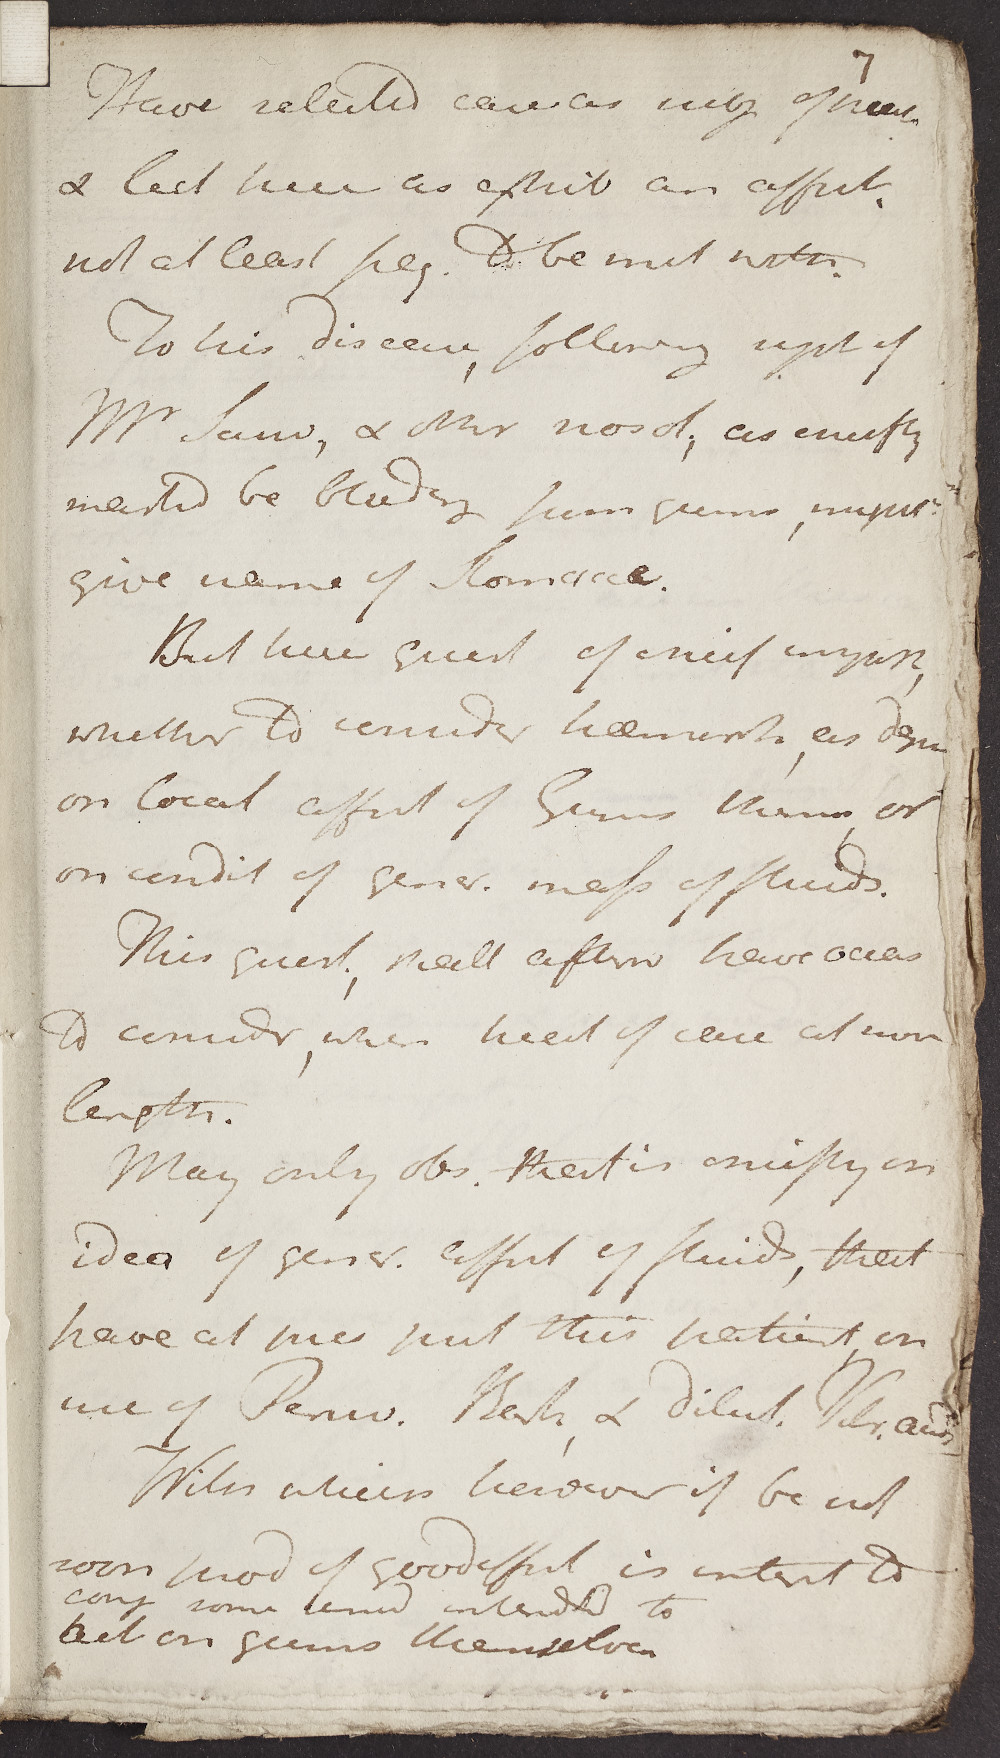 7
Have selected case as subj of
& lect here as exhib an affect.
not at least freq. To be met with.
To this disease, following
Mr Sauv, & other nosol, as chiefly
marked be bleeding from gums,
give name of Stomacace.
But here quest of chief import,
whether To consider haemorrh, as depen
on local affect of Gums thems, or
on condit of gener. mass of fluids.
This quest, shall afterw have occas
To consider, when treat of case at more
length.
May only obs. that is chiefly on
idea of gener. affect of fluids, that
have at pres put this patient, on
use of Peruv. Bark, & dilut. Vitr. acid
With which however if be not
soon prod of good effect is intent To
conj some remed intended to
act on gums themselves